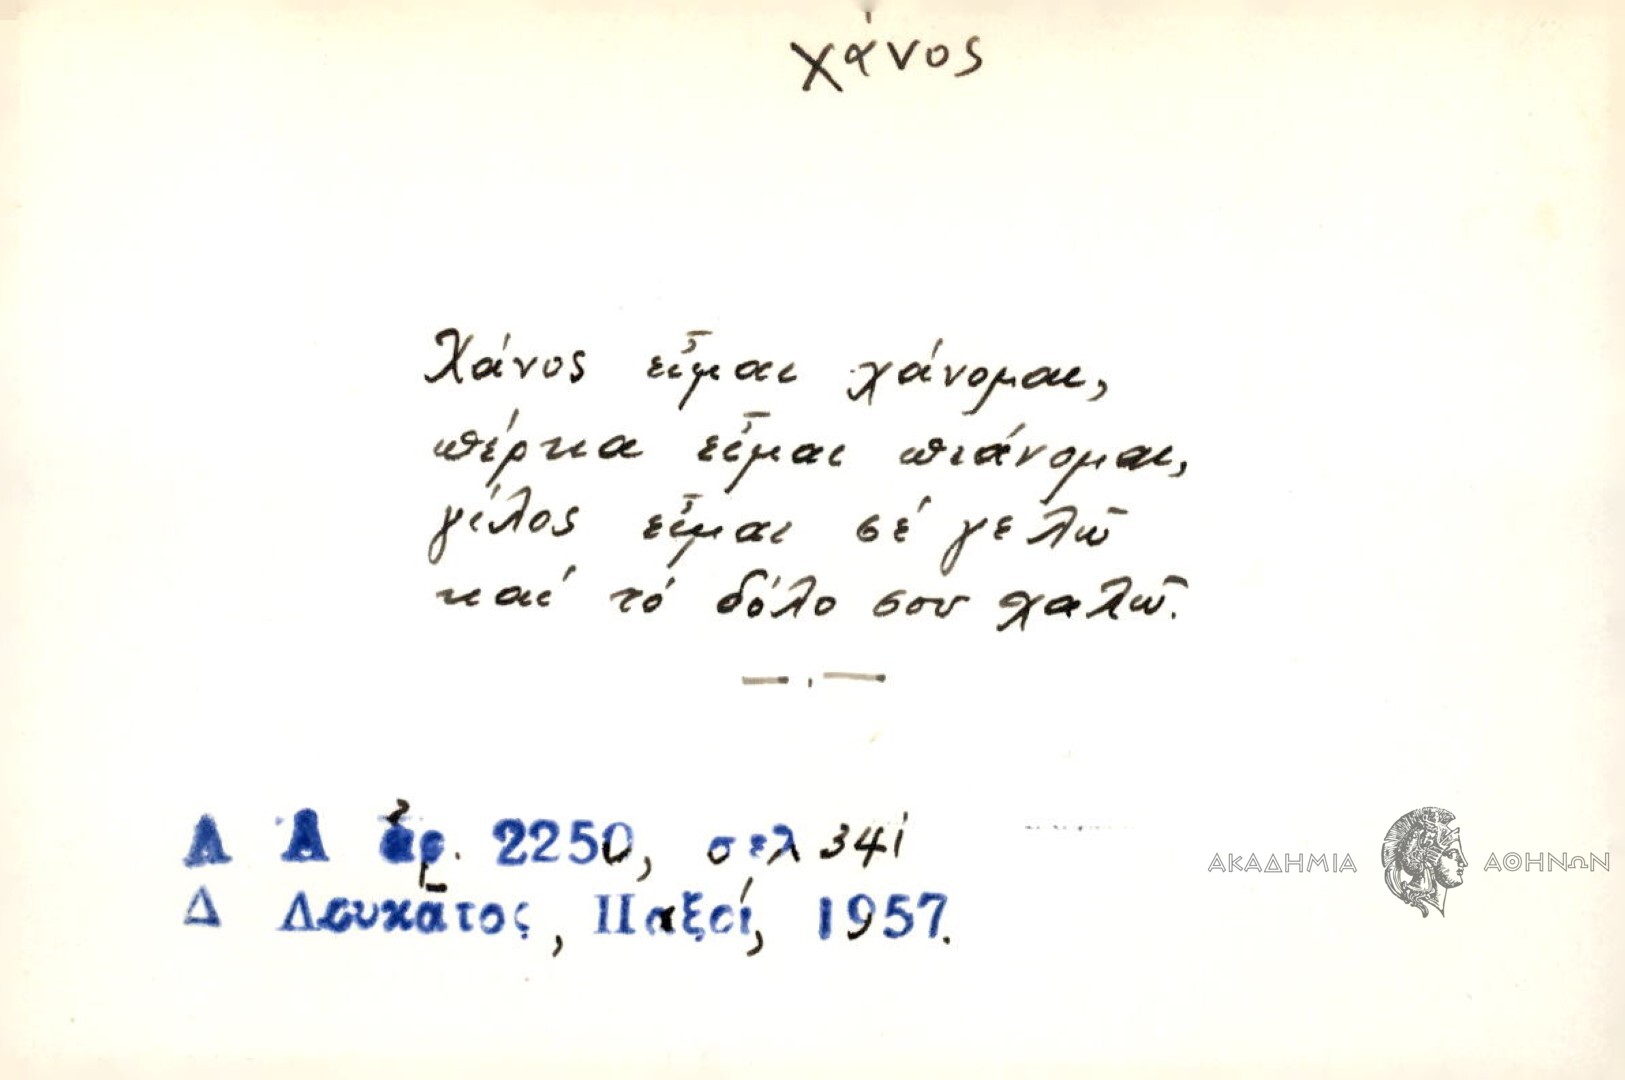 χάνος
Χάνος εἶμαι χάνομαι,
πέρκα εἶμαι πιάνομαι,
γύλος εἶμαι σέ γελῶ
καί τό δόλο σου χαλῶ.
Λ Α ἀρ. 2250, σελ 341
Δ Λουκᾶτος, Παξοί, 1957.
ΑΚΑΔΗΜΙΑ ΑΘΗΝΩΝ